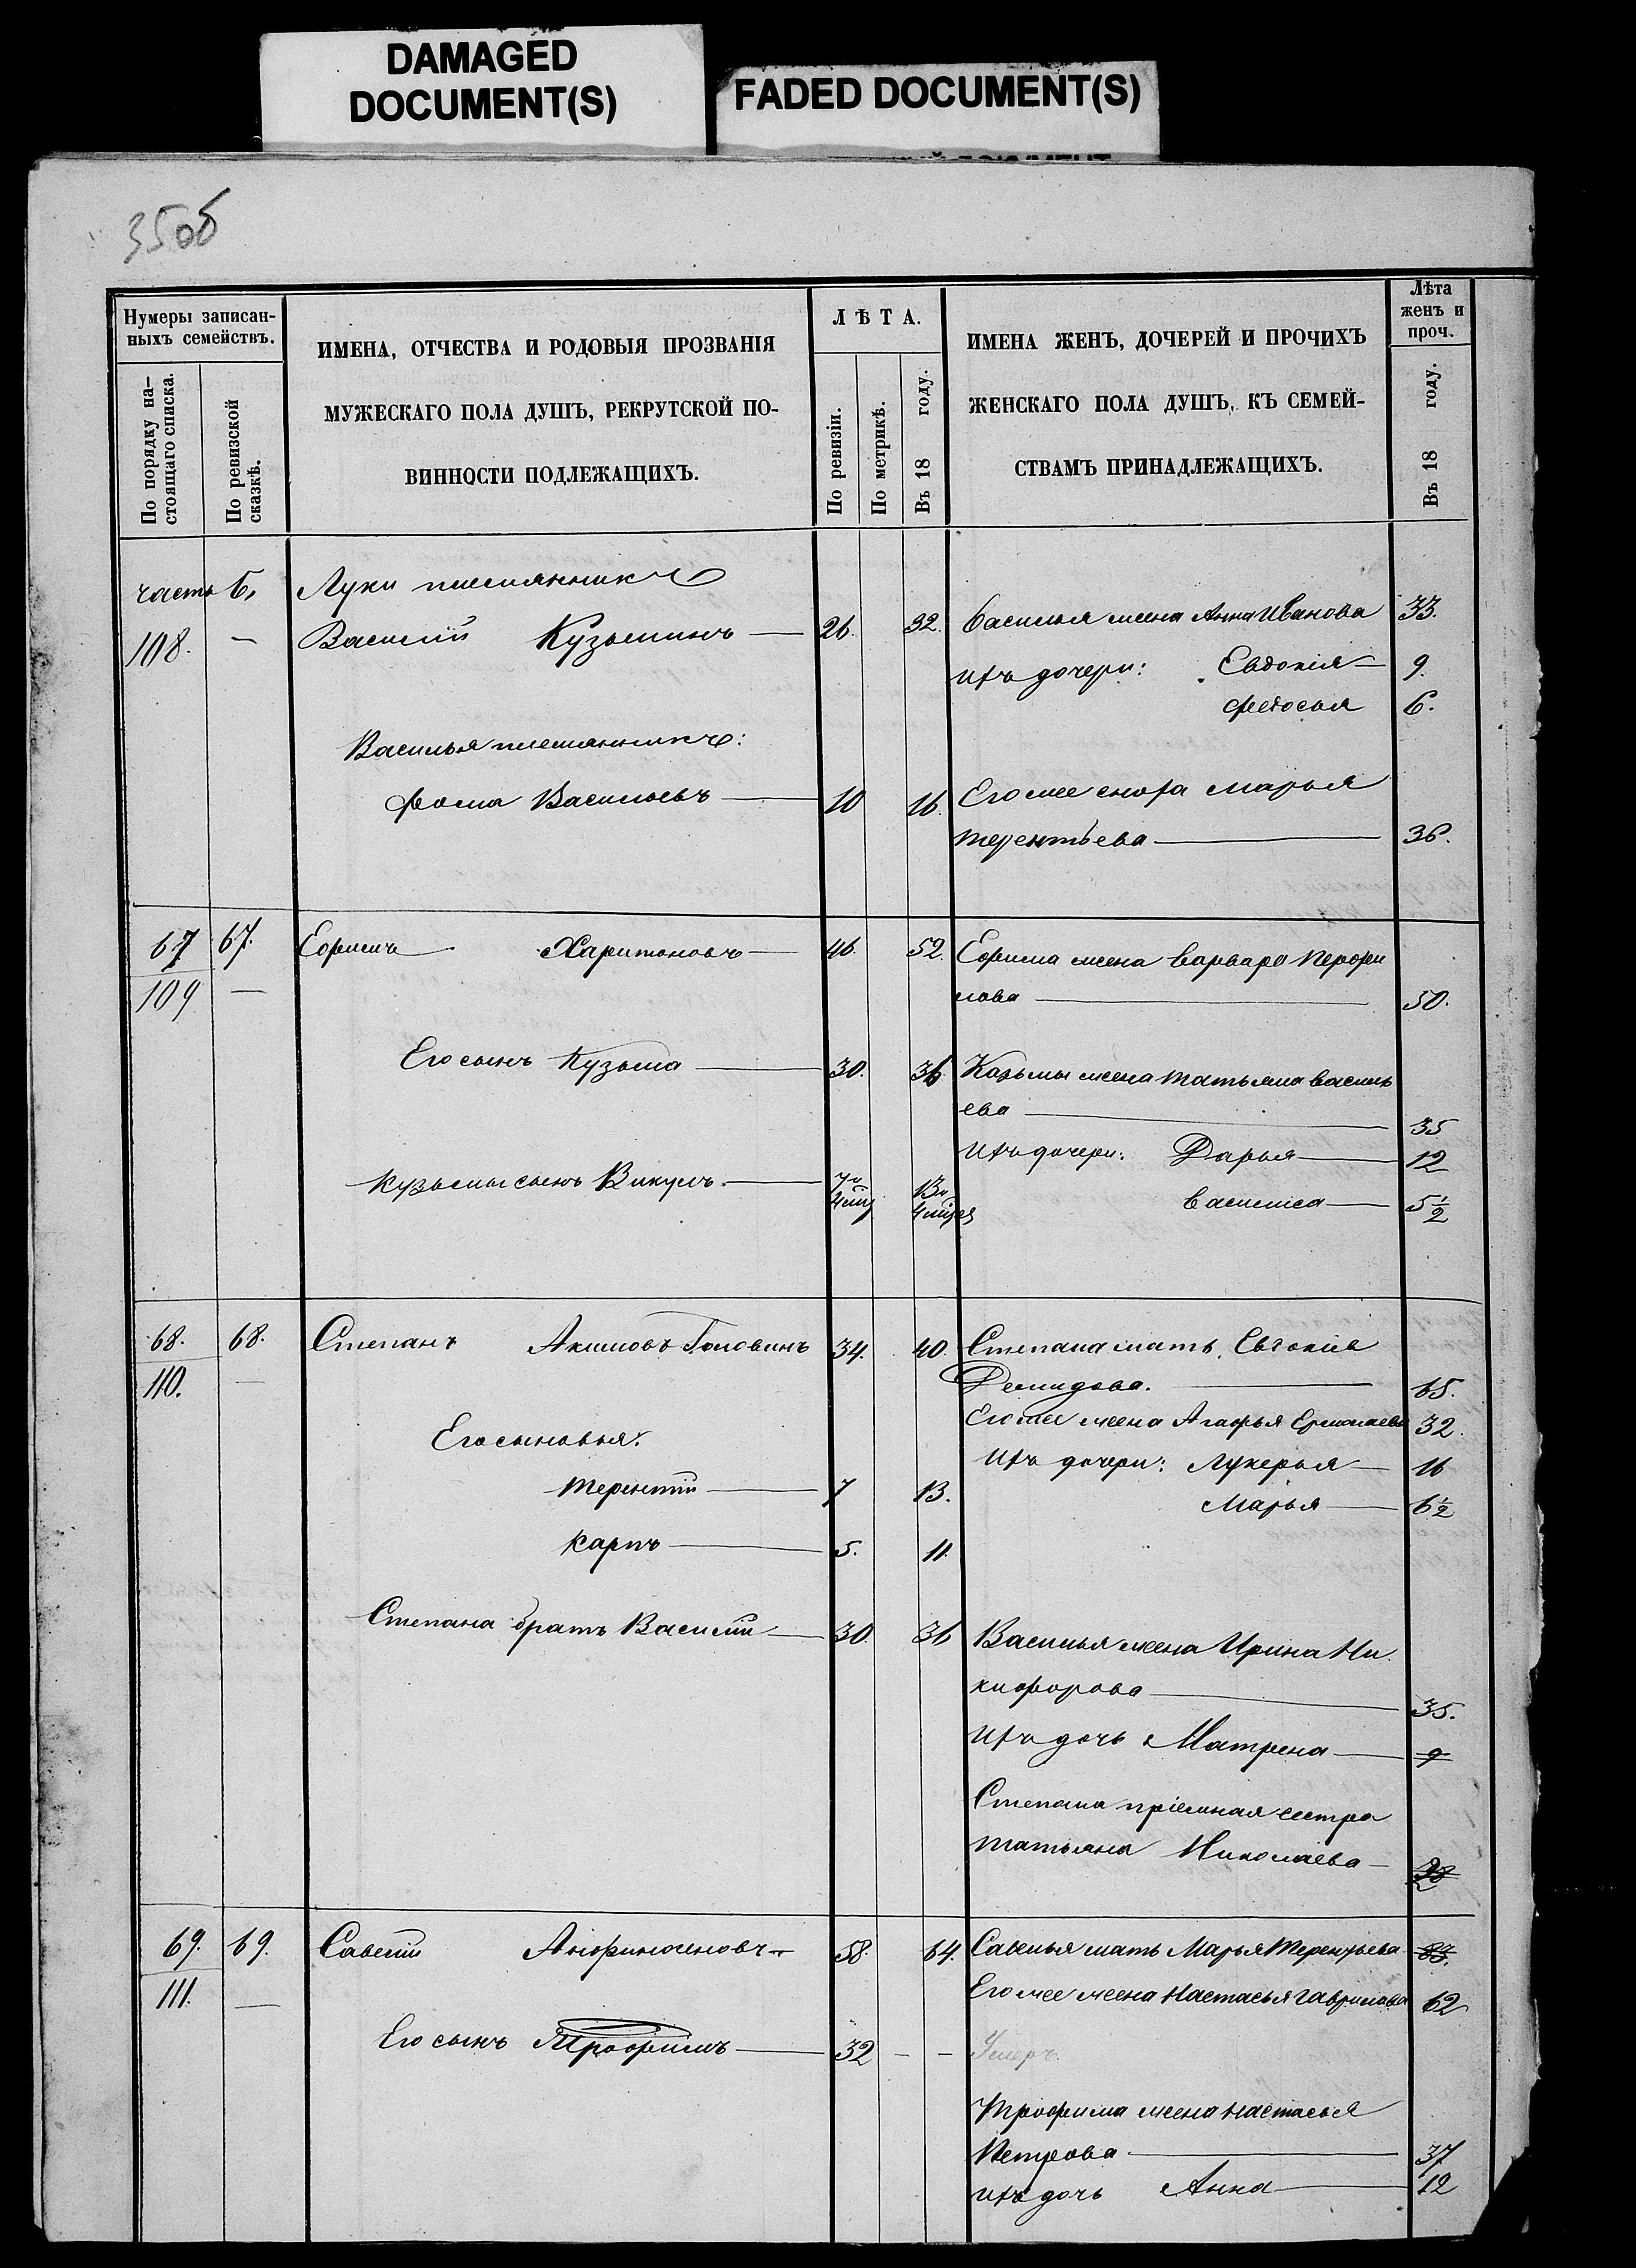 DAMAGED
DOCUMENT(S)
FADED DOCUMENT(S)
35об
Нумеры записан-
ныхъ семействъ.
По порядку на-
стоящаго списка.
По ревизской
сказкѣ.
ИМЕНА, ОТЧЕСТВА И РОДОВЫЯ ПРОЗВАНІЯ
МУЖЕСКАГО ПОЛА ДУШЪ, РЕКРУТСКОЙ ПО-
ВИННОСТИ ПОДЛЕЖАЩИХЪ.
ЛѢТА.
По ревизіи.
По метрикѣ.
Въ 18 году.
ИМЕНА ЖЕНЪ, ДОЧЕРЕЙ И ПРОЧИХЪ
ЖЕНСКАГО ПОЛА ДУШЪ, КЪ СЕМЕЙ-
СТВАМЪ ПРИНАДЛЕЖАЩИХЪ.
Лѣта
женъ и
проч.
Въ 18 году.
часть б, Луки племянникъ
108. — Василій Кузьминъ — 26. 32. Василья жена Анна Иванова 33.
Ихъ дочери: Евдокія — 9.
Федосья 6.
Василья племянникъ:
Фома Васильевъ — 10 16. Его же сноха Марья
Терентьева — 36.
67 67. Ефимъ Харитоновъ — 46. 52. Ефима жена Варвара Перфи
109 — лова — 50.
Его сынъ Кузьма — 30. 36. Козьмы жена Татьяна Василь
ева — 35
Ихъ дочери: Дарья — 12
Кузьмы сынъ Викулъ — 7 и 4 мц 13 и 4 мцсц Василиса — 5½
68. 68. Степанъ Акимовъ Головинъ 34. 40. Степана мать Евдокія
110. — Демидова. — 65.
Его же жена Агафья Ермолаева 32.
Его сыновья: Ихъ дочери: Лукерья — 16
Терентій — 7 13. Марья — 6½
Карпъ — 5. 11.
Степана братъ Василій — 30. 36 Василья жена Ирина Ни
кифорова — 35.
Ихъ дочь Матрена — 9
Степана пріемная сестра
Татьяна Николаева — 28
69. 69. Савелій — 58 64. Савелья мать Марья Терентьева 83.
111. — Его же жена Настасья Гаврилова 62
Его сынъ Трофимъ — 32 — — Умеръ.
Трофима жена Настасья
Петрова — 37
Ихъ дочь Анна — 12